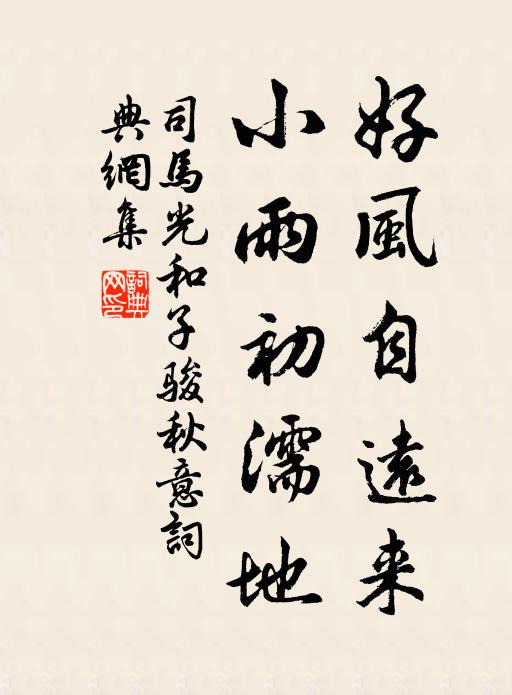 好風自遠来
小雨初濡地
司馬光和子駿秋意詞
典網集
詞典
网印